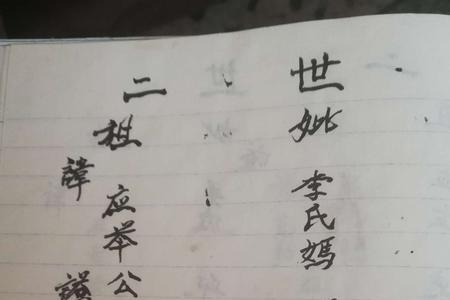 二世
諱
祖应举公
妣李民媽